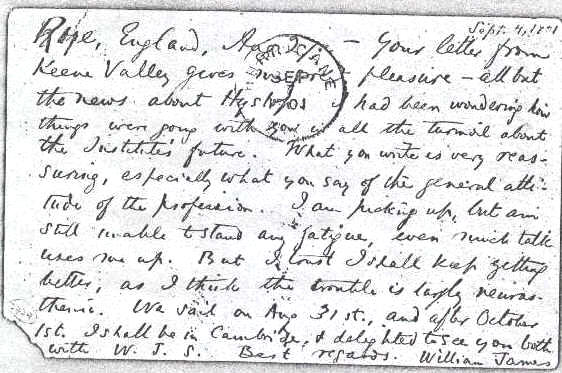 Sept. 4, 1901
Rye, England, Aug — Your letter from
Keene Valley gives pleasure — all but
the news about Hyslop. I had been wondering how
things were going with you in all the turmoil about
the Institute's future. What you write is very reas-
suring, especially what you say of the general atti-
tude of the profession. I am picking up, but am
still unable to stand any fatigue, even much talk
uses me up. But I trust I shall keep getting
better, as I think the trouble is largely neuras-
thenic. We sail on Aug 31st., and after October
1st. I shall be in Cambridge, & delighted to see you both
with W. J. S. Best regards. William James